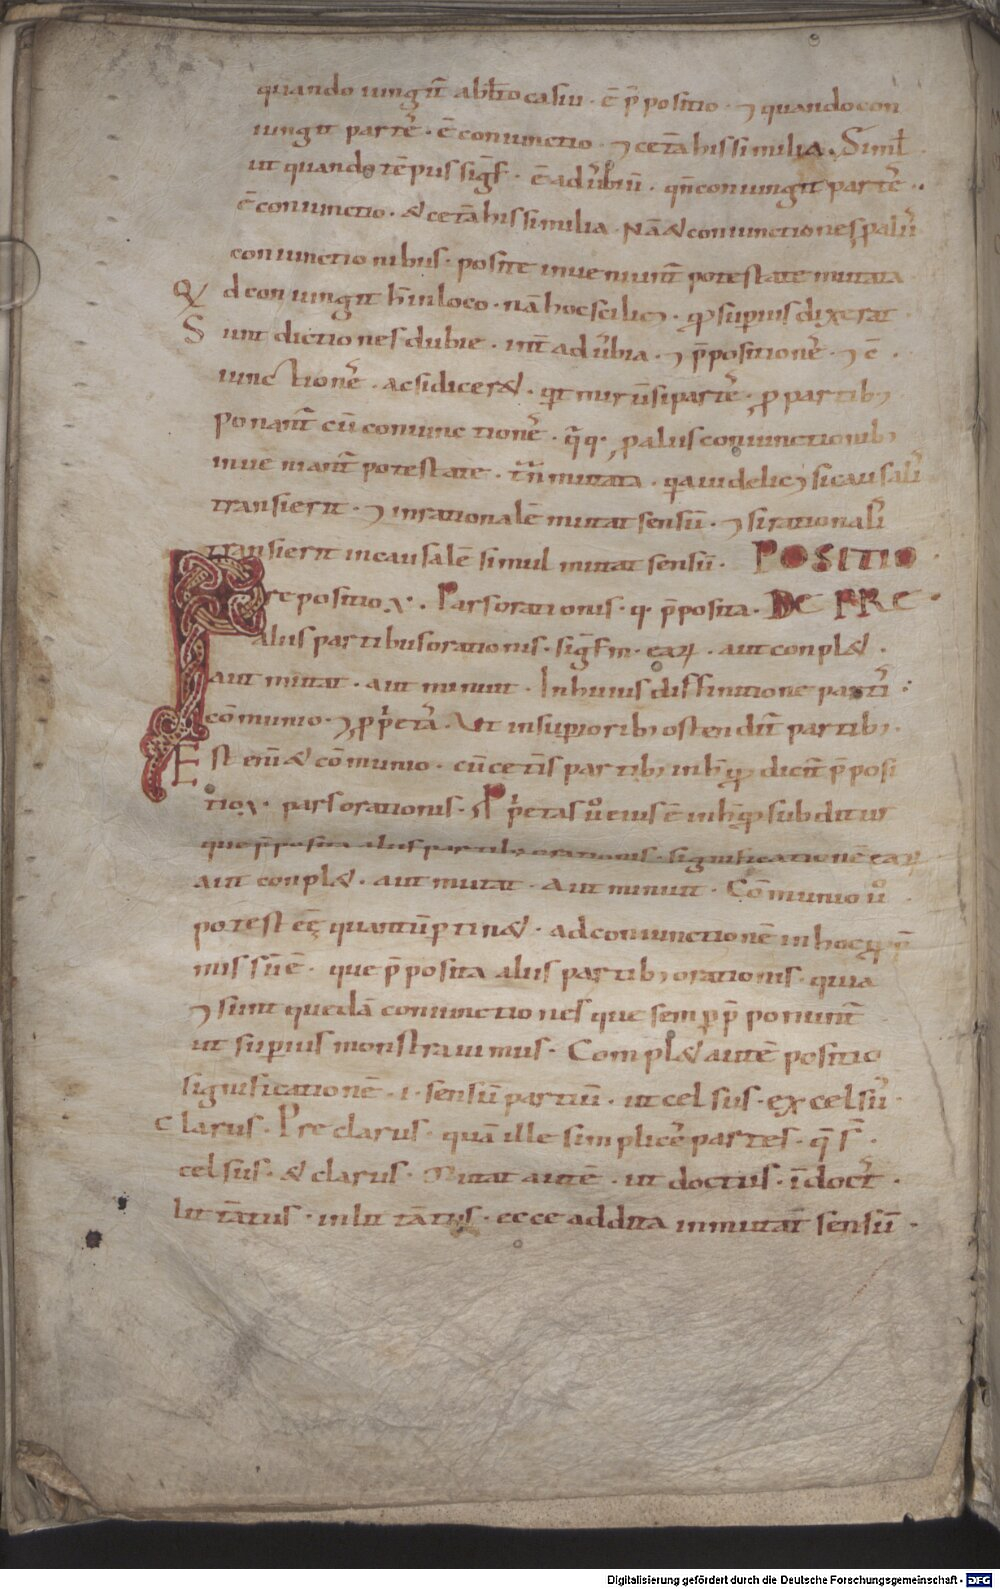 quando iungit̄ abl̄to casiu · ē p̄positio · ⁊ quando con
iungit partē · ē coniunctio · ⁊ cet̄a his similia · Simil̄
ut quando tēpus sigf̄ · ē aduˀbiū · qn̄ coniungit partē ··
ē coniunctio · & cet̄a his similia · Nā & coniunctiones p aliˀ
coniunctionibus · posite inueniunt̄ potestate mutata
Qd coniungit h̄ in loco · nā hoc scilic& · qđ supius dixerat
Sunt dictiones dubie · int̄ aduˀbia · ⁊ p̄positionēˀ · ⁊ c̄
iunctionēˀ · ac si dicer& · qt mirū si partēˀ · p partib;
ponant̄ cū coniunctionēˀ · q̄q · p aliis coniunctionib;
inueniant̄ potestate · tn̄ mutata · q̄a uidelic& si causaliˀ
transierit · ⁊ in rationalē mutat sensū · ⁊ si rationaliˀ
transierit in causalē simul mutat sensū · POSITIO
Prepositio · Pars orationis · q · p̄posita · DE PRE
aliis partibus orationis · sigf̄m · earꝝ · aut conpl& ·
aut mutat · aut minuit · In huius diffinitione partiˀ :
cōmunio · ⁊ p̄p̄et̄a · Ut in supiorib; ostendit̄ partib; ·
Est enī & cōmunio · cū cet̄is partib; in h̄ qđ dicit̄ p̄posi
tio · pars orationis · Pp̄etas ů eius ē in h̄ qđ subditur
que p̄posita aliis partib; orationis · significationē earꝝ
aut conpl& · aut mutat · aut minuit · Cōmunio ů
potest eē quantū ptin& · ad coniunctionē in hoc
missū ē · que p̄posita aliis partib; orationis · quia
⁊ sunt quedā coniunctiones que semp p̄ponunt̄
ut supius monstrauimus · Compl& autē positio
significationē · i · sensū partiū · ut celsus · excelsuˀ ·
Clarus · Preclarus · quā ille simplicēˀ partes · q̄ s̄ ·
celsus · & clarus · Mutat autē · ut doctus · īdoctˀ ·
lit̄atus · inlit̄atus · ecce addita inmutat̄ sensū ·
Digitalisierung gefördert durch die Deutsche Forschungsgemeinschaft - DFG